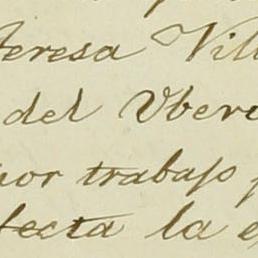 Teresa Vill
del Vber
por trabajo p
fecta la e